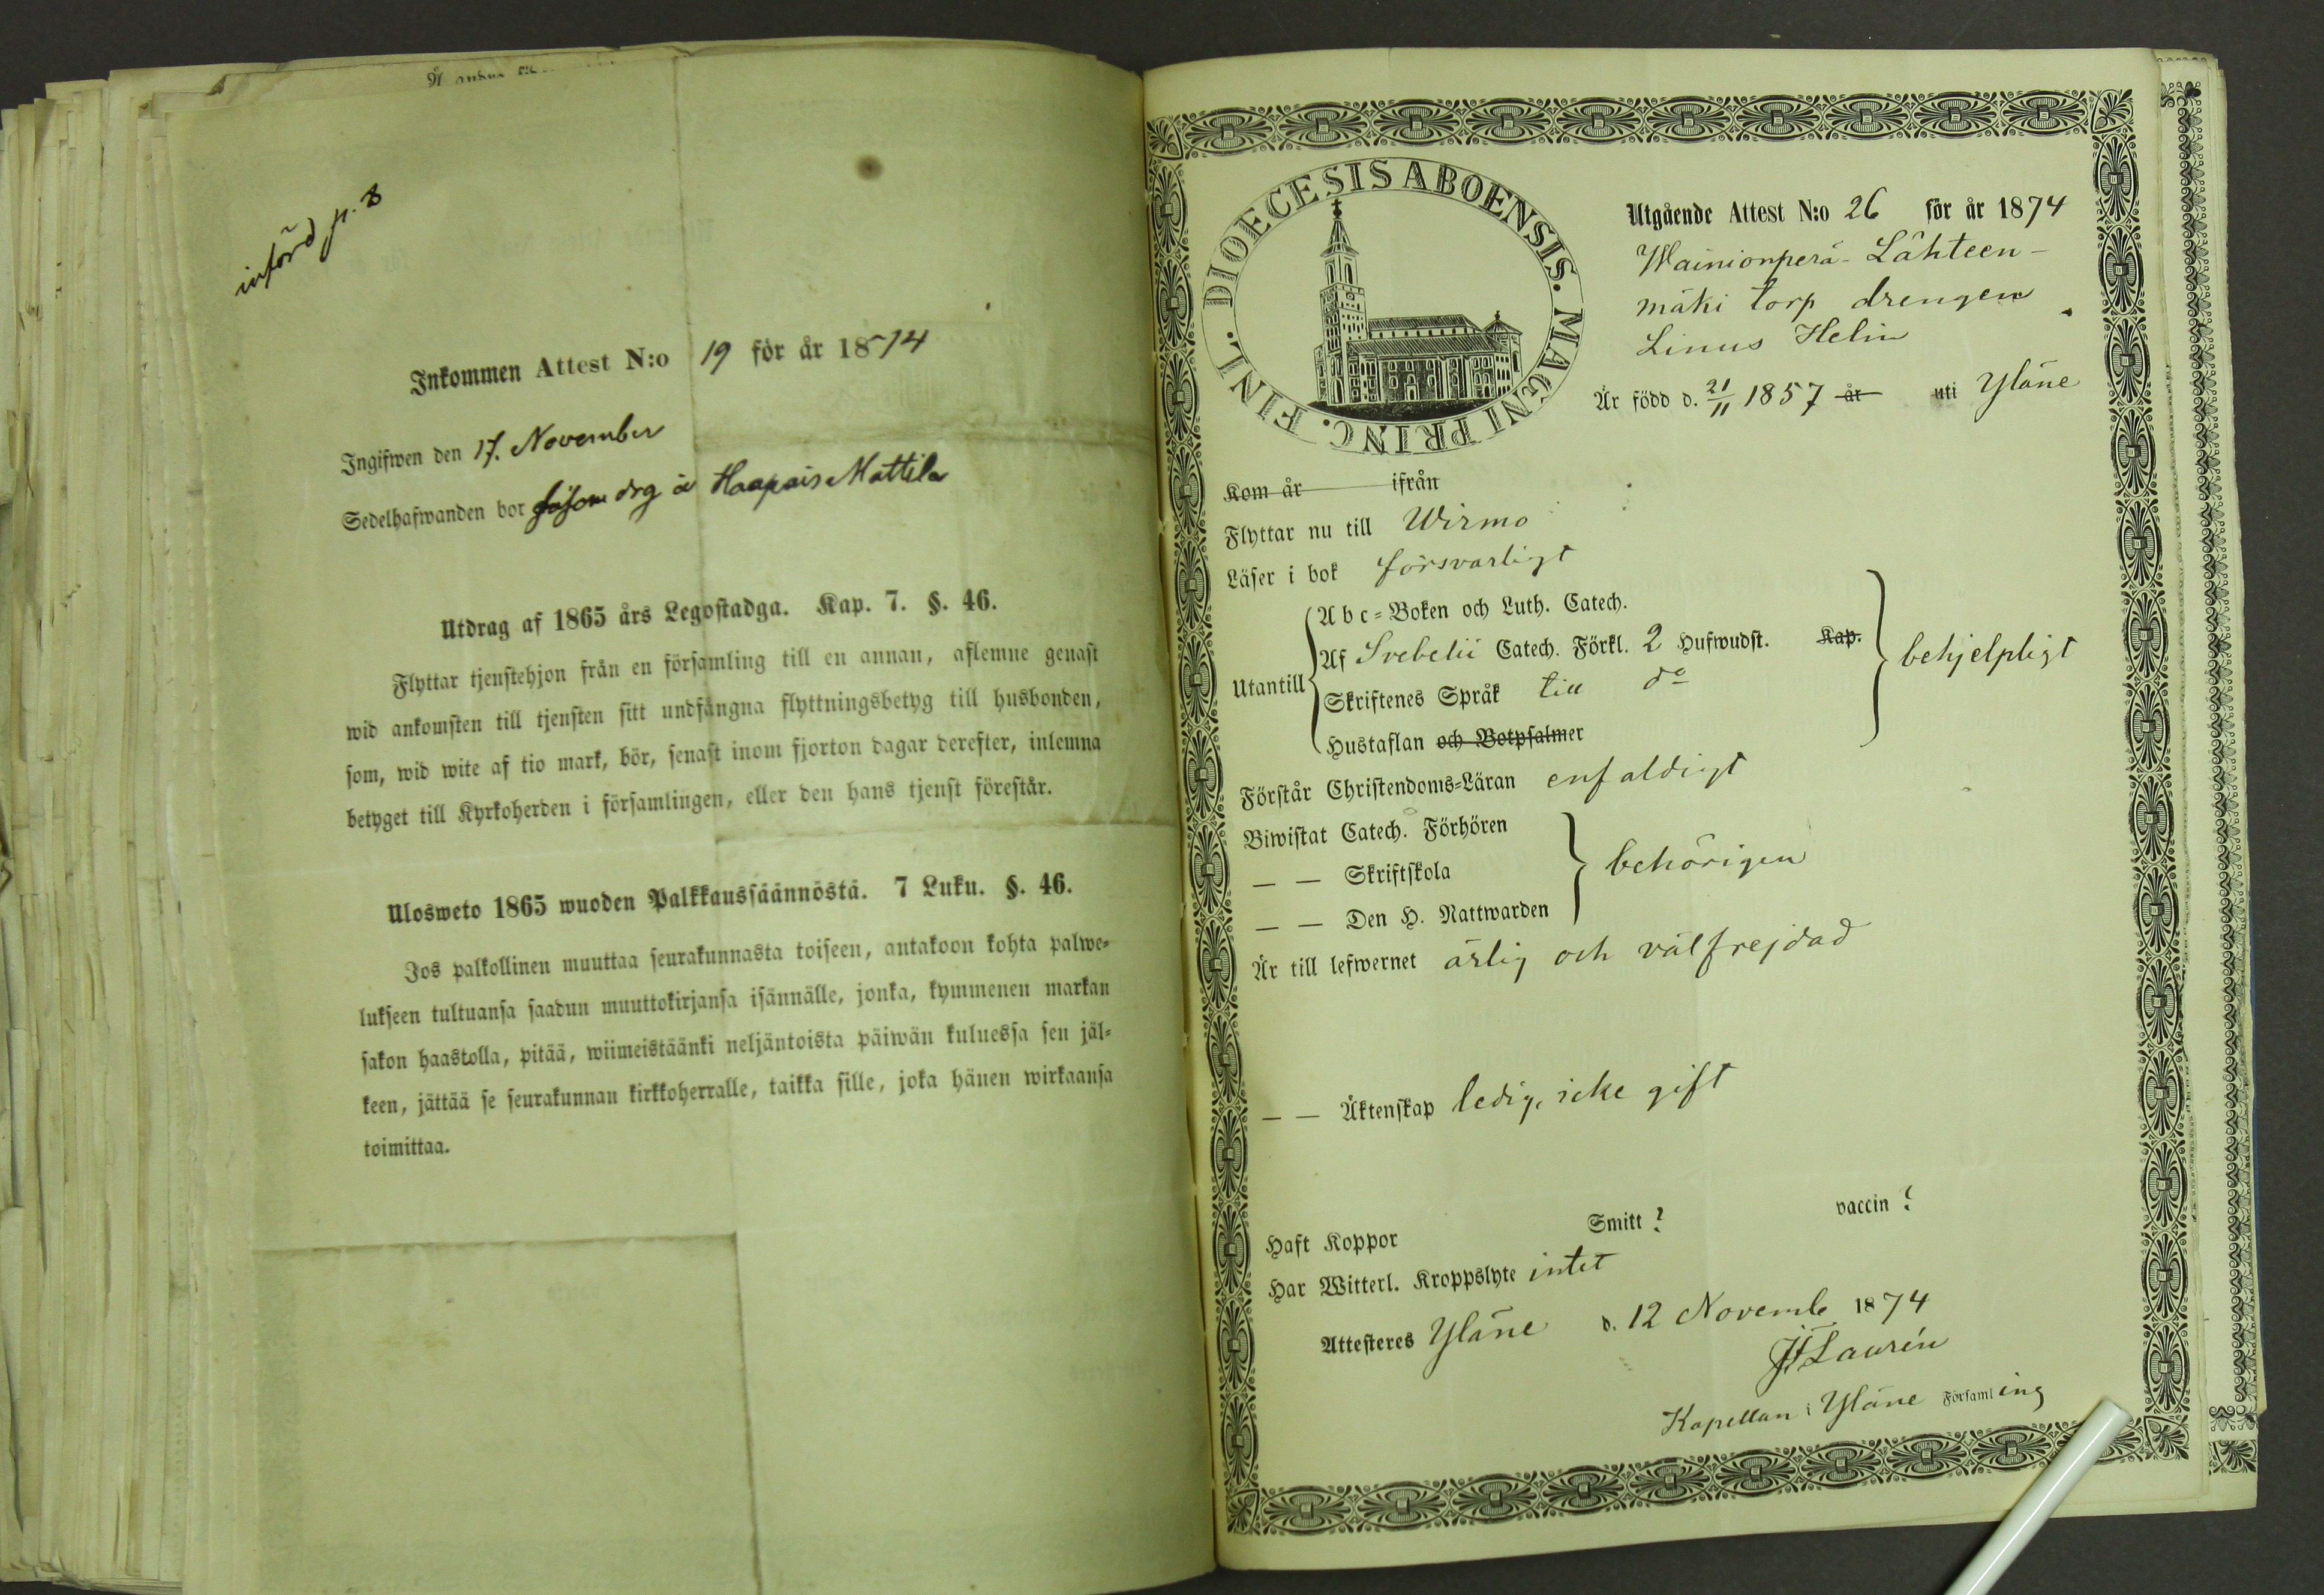 införd p. 8
Inkommen Attest N:o 19 för år 1874
Ingifwen den 17. November
Sedelhafwanden bor såsom drg å Haapais Mattila
Utdrag af 1865 års Legostadga. Kap. 7. §. 46.
Flyttar tjenstehjon från en församling till en annan, aflemne genast
wid ankomsten till tjensten sitt undfångna flyttningsbetyg till husbonden,
som, wid wite af tio mark, bör, senast inom fjorton dagar derefter, inlemna
betyget till Kyrkoherden i församlingen, eller den hans tjenst förestår.
Ulosweto 1865 wuoden Palkkaussäännöstä. 7 Luku. §. 46.
Jos palkollinen muuttaa seurakunnasta toiseen, antakoon kohta palwe-
lukseen tultuansa saadun muuttokirjansa isännälle, jonka, kymmenen markan
sakon haastolla, pitää, wiimeistäänki neljäntoista päiwän kuluessa sen jäl-
keen, jättää se seurakunnan kirkkoherralle, taikka sille, joka hänen wirkaansa
toimittaa.
DIOECESIS ABOENSIS. MAGNI PRINC. FINL.
Utgående Attest N:o 26 för år 1874
Wainionperä-Lähteen-
mäki torp drengen
Linus Helin
Är född d. 21/11 1857 år uti Yläne
Kom år ifrån
Flyttar nu till Wirmo
Läser i bok försvarligt
Utantill
Abc-Boken och Luth. Catech.
Af Svebelii Catech. Förkl. 2 Hufwudst. Kap.
Skriftenes Språk till do
Hustaflan och Botpsalmer
behjelpligt
Förstår Christendoms-Läran enfaldigt
Biwistat Catech. Förhören
— — Skriftskola
— — Den H. Nattwarden
behörigen
Är till lefwernet ärlig och välfrejdad
— — Äktenskap ledig, icke gift
Haft Koppor Smitt? vaccin?
Har Witterl. Kroppslyte intet
Attesteres Yläne d. 12 Novemb 1874
Laurén
Kapellan i Yläne Församling